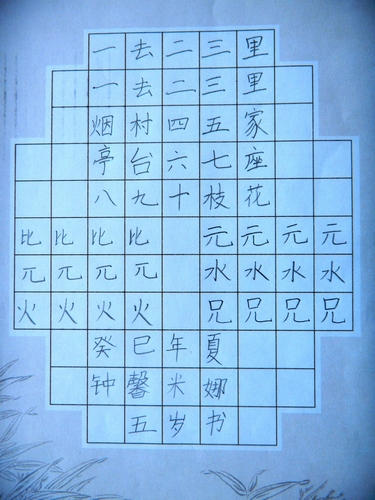 一去二三里
一去二三里
烟村四五家
亭台六七座
八九十枝花
比比比比 元元元元
兀兀兀兀 水水水水
火火火火 兄兄兄兄
癸巳年夏
钟馨米娜
五岁书